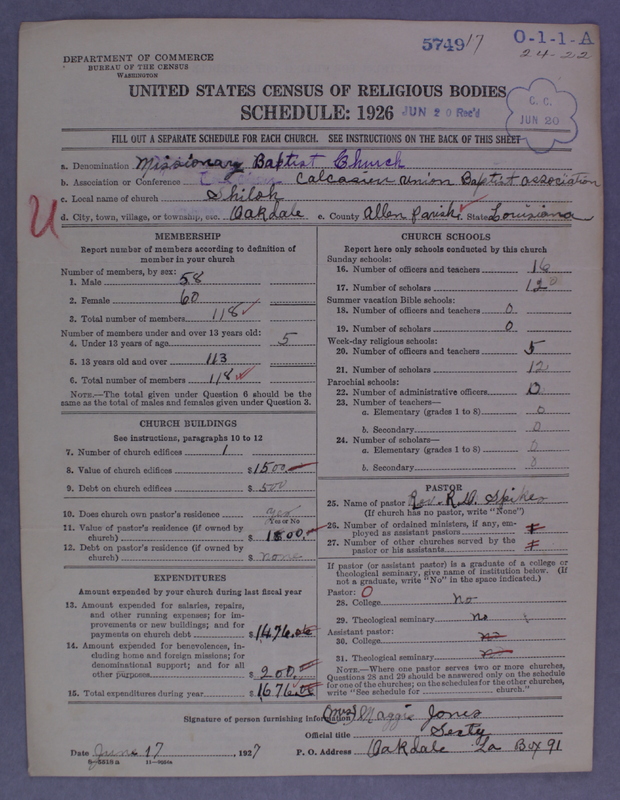 5749 17
O-1-1-A
24-22
DEPARTMENT OF COMMERCE
BUREAU OF THE CENSUS
WASHINGTON
UNITED STATES CENSUS OF RELIGIOUS BODIES
SCHEDULE: 1926
JUN 20 Rec'd
C. C.
JUN 20
FILL OUT A SEPARATE SCHEDULE FOR EACH CHURCH. SEE INSTRUCTIONS ON THE BACK OF THIS SHEET
a. Denomination Missionary Baptist Church
b. Association or Conference Calcasieu Union Baptist association
c. Local name of church Shiloh
U
d. City, town, village, or township, etc. Oakdale e. County Allen Parish State Louisiana
MEMBERSHIP
Report number of members according to definition of member in your church
Number of members, by sex:
1. Male 58
2. Female 60
3. Total number of members 118
Number of members under and over 13 years old:
4. Under 13 years of age 5
5. 13 years old and over 113
6. Total number of members 118
NOTE.—The total given under Question 6 should be the
same as the total of males and females given under Question 3.
CHURCH BUILDINGS
See instructions, paragraphs 10 to 12
7. Number of church edifices 1
8. Value of church edifices $1500.
9. Debt on church edifices $500
10. Does church own pastor's residence yes
Yes or No
11. Value of pastor's residence (if owned by
church) $1800.
12. Debt on pastor's residence (if owned by
church) $none
EXPENDITURES
Amount expended by your church during last fiscal year
13. Amount expended for salaries, repairs,
and other running expenses; for im-
provements or new buildings; and for
payments on church debt $1476.00
14. Amount expended for benevolences, in-
cluding home and foreign missions; for
denominational support; and for all
other purposes $200.
15. Total expenditures during year $1676.00
CHURCH SCHOOLS
Report here only schools conducted by this church
Sunday schools:
16. Number of officers and teachers 16
17. Number of scholars 120
Summer vacation Bible schools:
18. Number of officers and teachers 0
19. Number of scholars 0
Week-day religious schools:
20. Number of officers and teachers 5
21. Number of scholars 12
Parochial schools:
22. Number of administrative officers 0
23. Number of teachers—
a. Elementary (grades 1 to 8) 0
b. Secondary 0
24. Number of scholars—
a. Elementary (grades 1 to 8) 0
b. Secondary 0
PASTOR
25. Name of pastor Rev. R. D. Spikes
(If church has no pastor, write "None")
26. Number of ordained ministers, if any, em-
ployed as assistant pastors
27. Number of other churches served by the
pastor or his assistants
If pastor (or assistant pastor) is a graduate of a college or
theological seminary, give name of institution below. (If
not a graduate, write "No" in the space indicated.)
Pastor: O
28. College no
29. Theological seminary no
Assistant pastor:
30. College no
31. Theological seminary no
NOTE.—Where one pastor serves two or more churches,
Questions 28 and 29 should be answered only on the schedule
for one of the churches; on the schedules for the other churches,
write "See schedule for church."
Signature of person furnishing information (Mrs) Maggie Jones
Official title Secty
Date June 17, 1927
P. O. Address Oakdale La Box 91
8-5618a 11-9660a